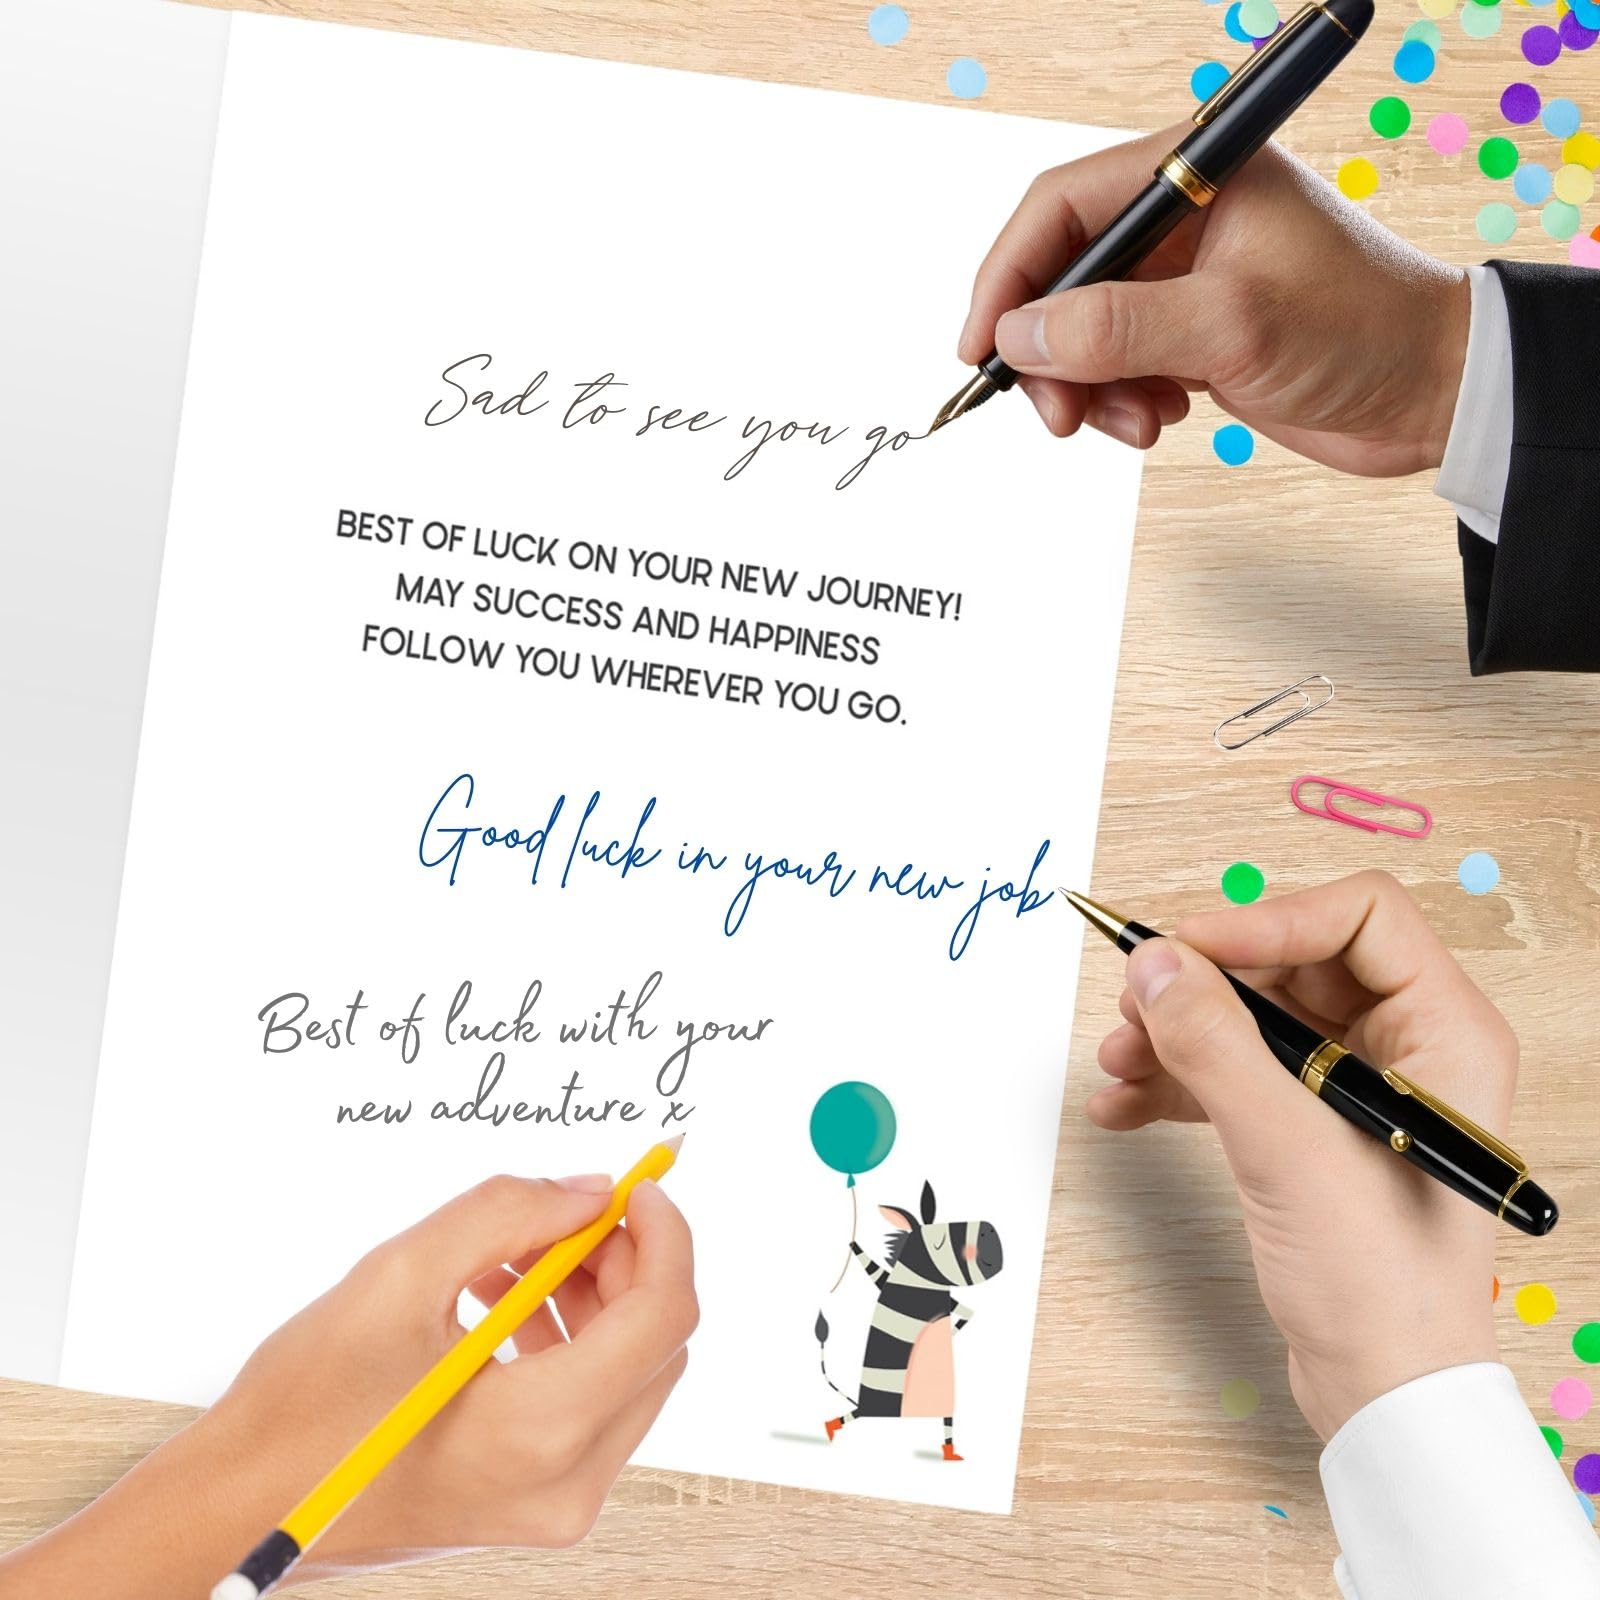 Sad to see you go
BEST OF LUCK ON YOUR NEW JOURNEY!
MAY SUCCESS AND HAPPINESS
FOLLOW YOU WHEREVER YOU GO.
Good luck in your new job
Best of luck with your
new adventure x